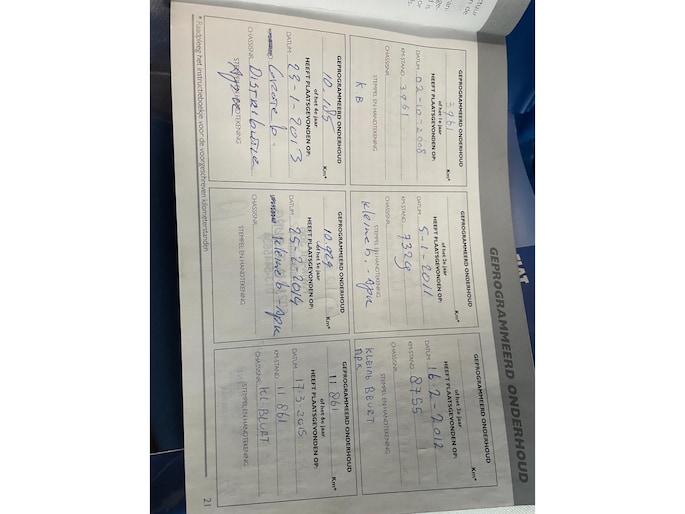 FIAT
GEPROGRAMMEERD ONDERHOUD
GEPROGRAMMEERD ONDERHOUD
3961 Km*
of het 1e jaar
HEEFT PLAATSGEVONDEN OP:
DATUM 02-10-2008
KM.STAND 3961
CHASSISNR.
STEMPEL EN HANDTEKENING
KB
GEPROGRAMMEERD ONDERHOUD
Km*
of het 2e jaar
HEEFT PLAATSGEVONDEN OP:
DATUM 5-1-2011
KM.STAND 7329
CHASSISNR.
STEMPEL EN HANDTEKENING
kleine b. - Apk
GEPROGRAMMEERD ONDERHOUD
Km*
of het 3e jaar
HEEFT PLAATSGEVONDEN OP:
DATUM 16-2-2012
KM.STAND 8755
CHASSISNR.
STEMPEL EN HANDTEKENING
KLEINE BEURT
APK
GEPROGRAMMEERD ONDERHOUD
10.185 Km*
of het 4e jaar
HEEFT PLAATSGEVONDEN OP:
DATUM 23-1-2013
Grote b.
CHASSISNR. DISTRIBUTIE
STEMPEL EN HANDTEKENING
GEPROGRAMMEERD ONDERHOUD
10.929 Km*
of het 5e jaar
HEEFT PLAATSGEVONDEN OP:
DATUM 25-2-2014
kleine b - Apk
CHASSISNR.
STEMPEL EN HANDTEKENING
GEPROGRAMMEERD ONDERHOUD
11861 Km*
of het 6e jaar
HEEFT PLAATSGEVONDEN OP:
DATUM 17.3.2015
KM.STAND 11861
CHASSISNR. KL BEURT
STEMPEL EN HANDTEKENING
* Raadpleeg het instructieboekje voor de voorgeschreven kilometerstanden
21